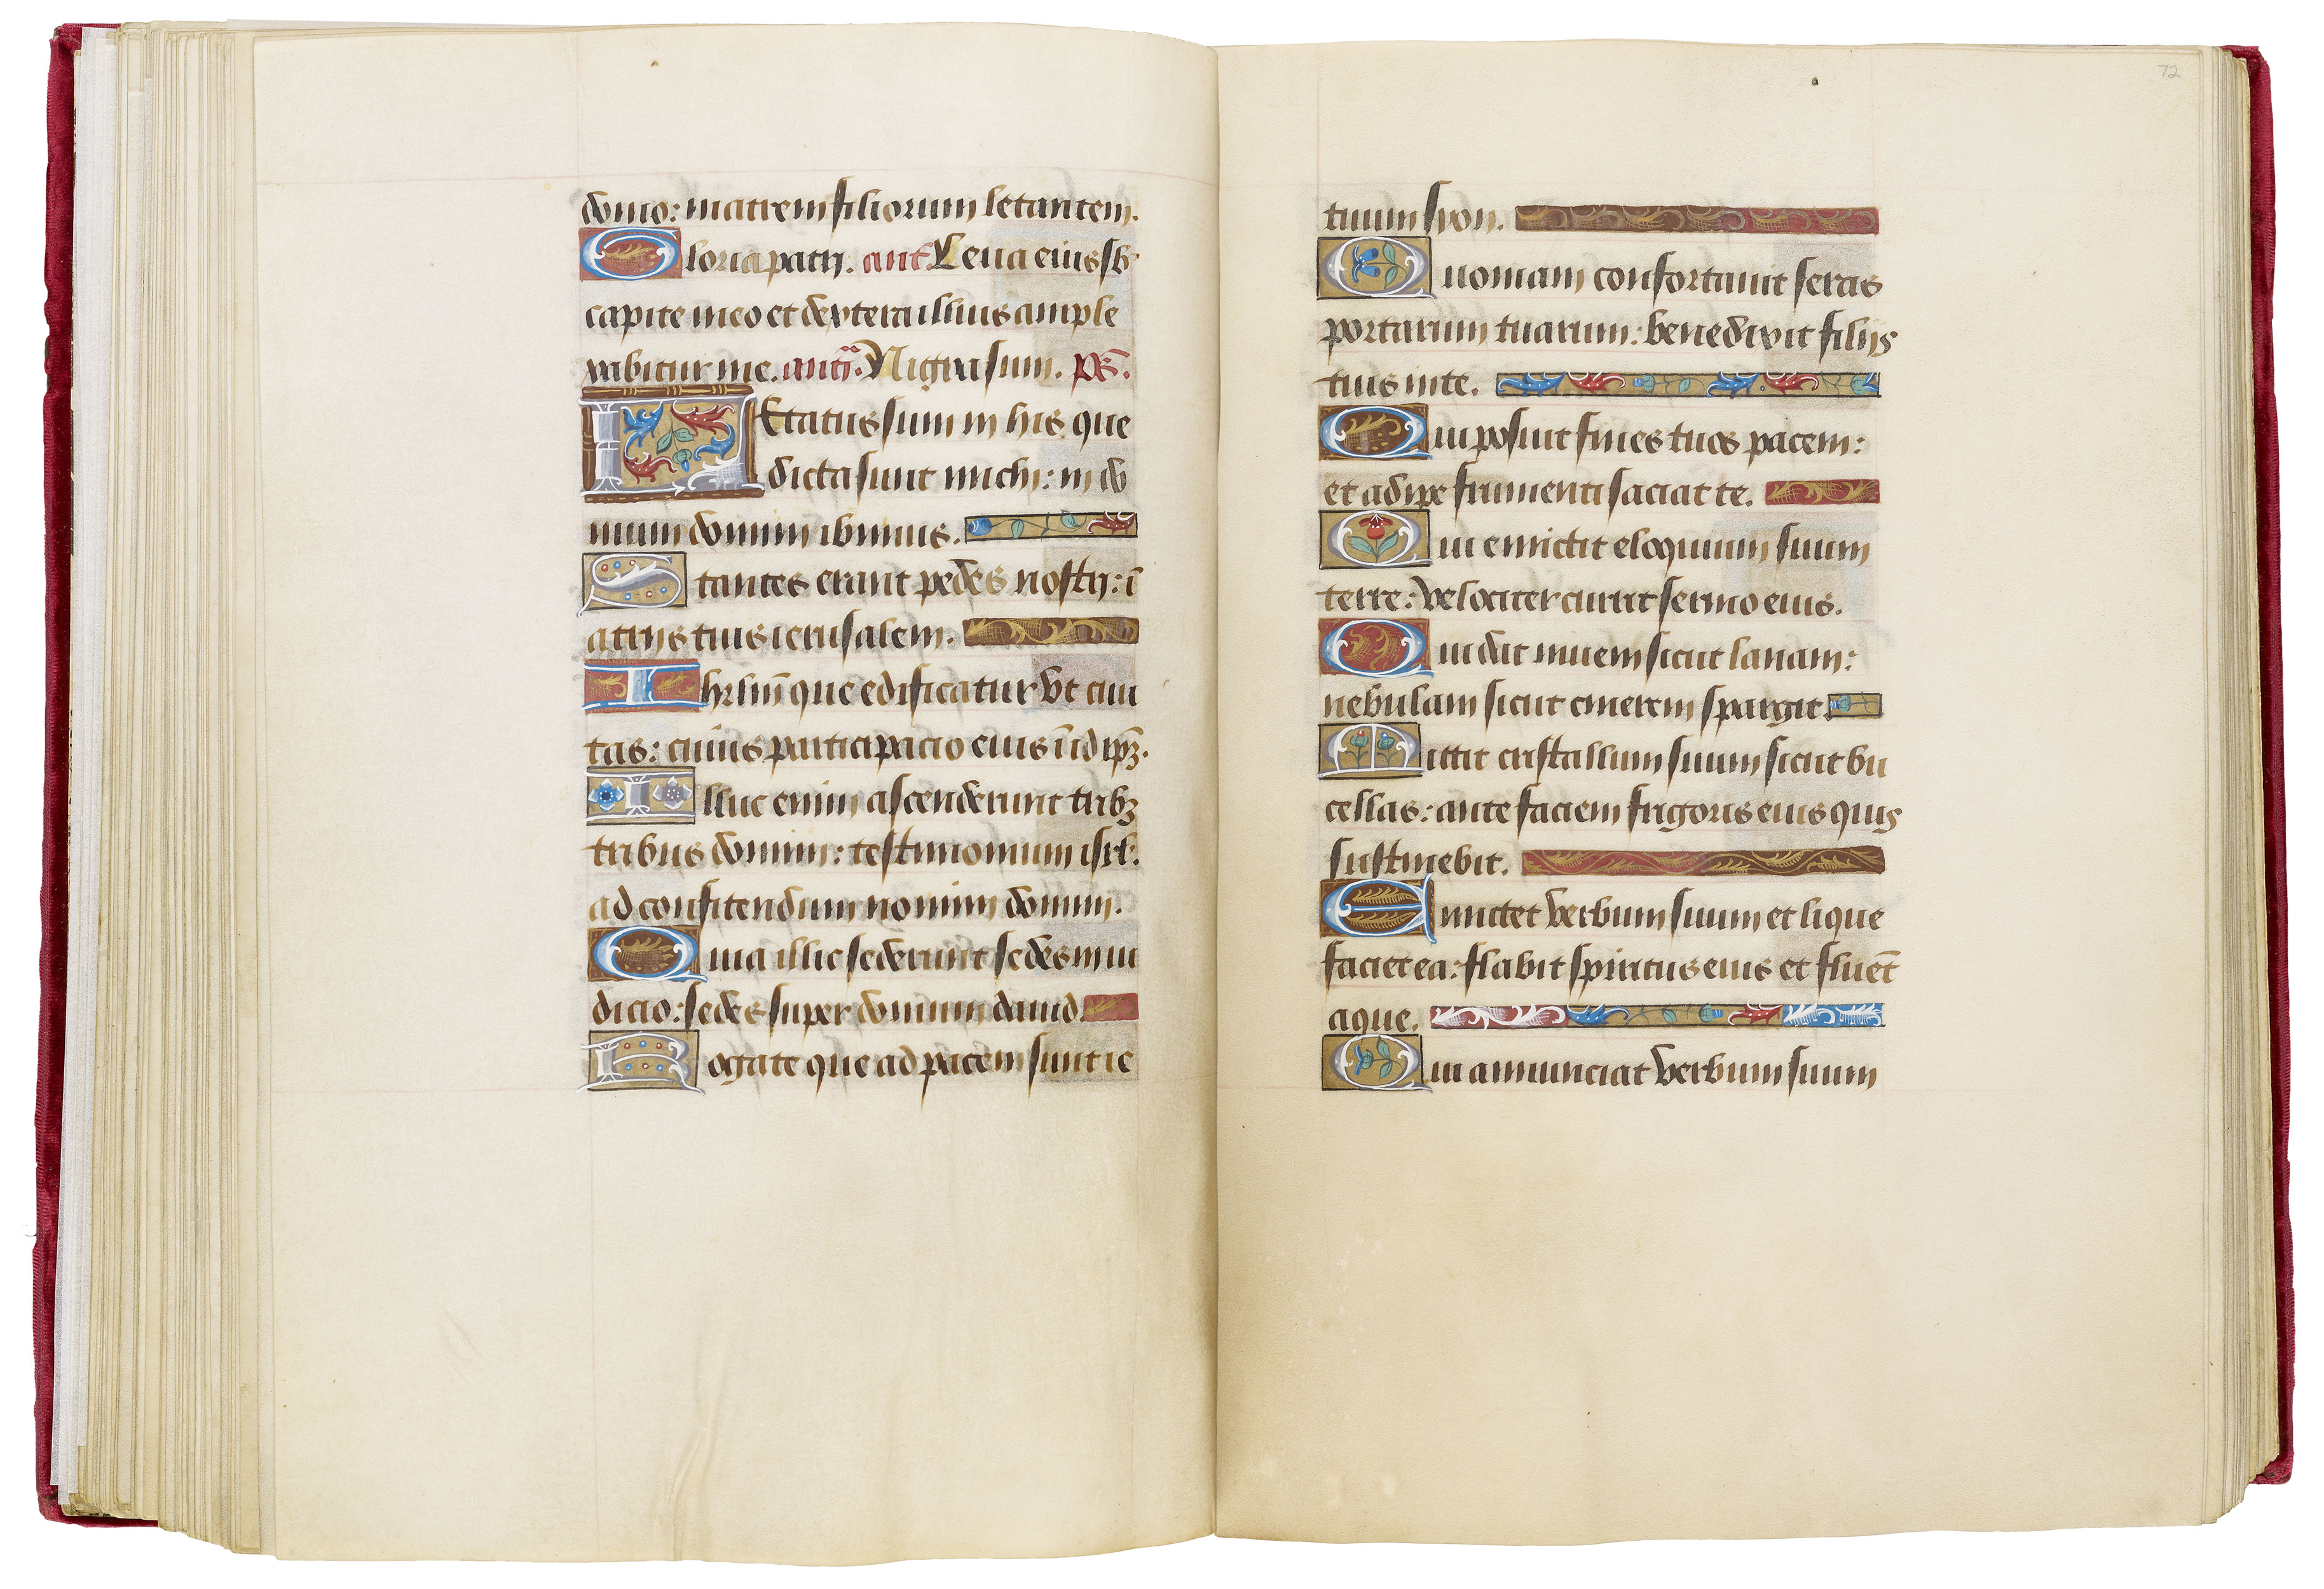 domo: matrem filiorum letantem.
Gloria patrj. ant̃ Leua eius sb
capite meo et dextera illius ample
xabitur me. antj̃. Nigra sum. ps̃.
LEtatus sum in his que
dicta sunt michi: in do
mum domini ibimus.
Stantes erant pedes nostrj: ĩ
atrijs tuis ierusalem.
Ihrlm̃ que edificatur vt ciui
tas: cuius participacio eius ĩ id ip̃ꝫ.
Illuc enim ascenderunt tribꝫ
tribus domini: testimonium isrl̃.
ad confitendum nomini domini.
Quia illic sederunt sedes in iu
dicio: sedes super domum dauid.
Rogate que ad pacem sunt ie
72
tuum syon.
Quoniam confortauit seras
portarum tuarum: benedixit filijs
tuis in te.
Qui posuit fines tuos pacem:
et adipe frumenti saciat te.
Qui emictit eloquium suum
terre: velociter currit sermo eius.
Qui dat niuem sicut lanam:
nebulam sicut cinerem spargit.
Mittit cristallum suum sicut bu
cellas: ante faciem frigoris eius quis
sustinebit.
Emictet verbum suum et lique
faciet ea: flabit spiritus eius et fluent̃
aque.
Qui annunciat verbum suum